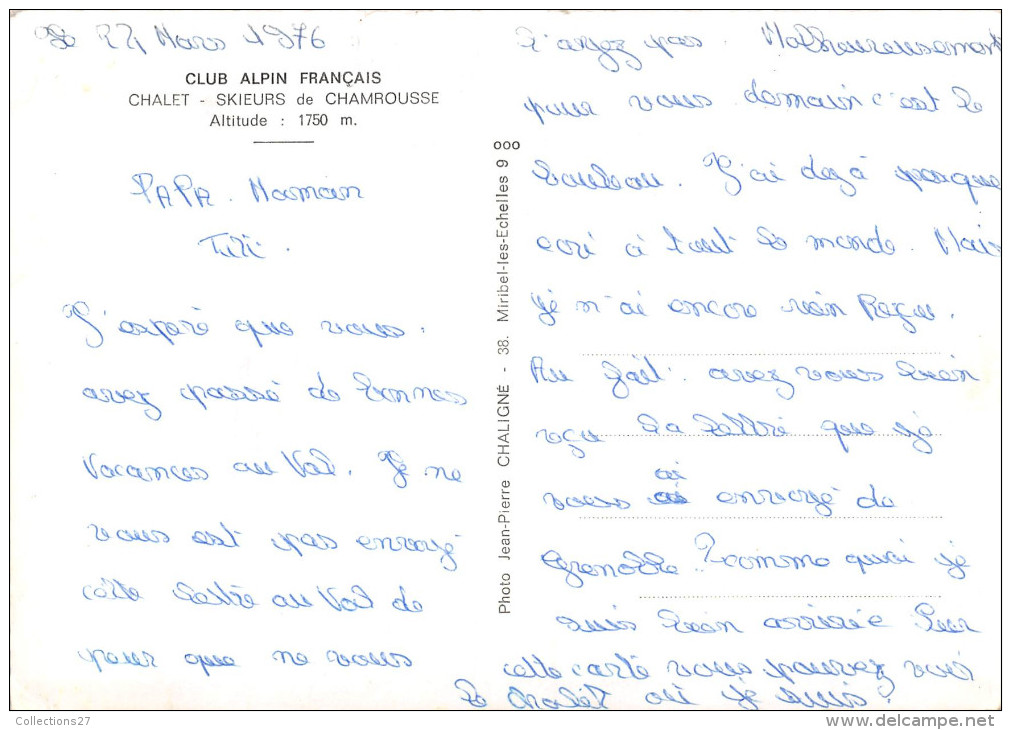 Le 22 Mars 1976
CLUB ALPIN FRANÇAIS
CHALET - SKIEURS de CHAMROUSSE
Altitude : 1750 m.
PAPA. Maman
Titi.
J'esperè que vous.
avez passé de bonnes
vacances au Val. Je ne
vous est pas envoyé
cette lettre au Val de
peur que ne vous
Photo Jean-Pierre CHALIGNÉ - 38. Miribel-les-Echelles 9 000
l'ayez pas. Malheureusement
pour vous demain c'est le
bouleau. J'ai dejà presque
ecri à tout le monde. Mais
je n'ai encore rien Reçu.
Au fait. avez vous bien
reçu la lettre que je
vous ai envoyé de
Grenoble. comme quoi je
suis bien arrivée Sur
cette carte vous pouvez voir
le chalet où je suis.
Collections27
www.delcampe.net